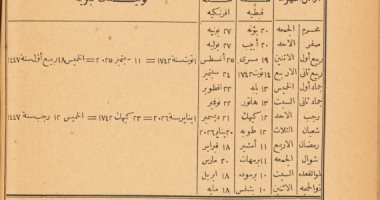 قبطية
افرنكيه
محرم الجمعه ٢٠ بؤنه ٢٧ يونيه
صفر الاحد ٢٠ أبيب ٢٧ يوليه
ربيع أول الاثنين ١٩ مسرى ٢٥ أغسطس ١ توت سنة ١٧٤٢ = ١١ سبتمبر ٢٠٢٥ = الخميس ١٨ ربيع أول سنة ١٤٤٧
ربيع ثانى الاربع ١٤ توت ١٧٤٢ ٢٤ سبتمبر
جماد أول الخميس ١٣ بابه ٢٣ اكتوبر
جماد ثانى السبت ١٣ هاتور ٢٢ نوفبر
رجب الاحد ١٢ كيهك ٢١ ديسمبر ١ يناير سنة ٢٠٢٦ = ٢٣ كيهك ١٧٤٢ = الخميس ١٢ رجب سنة ١٤٤٧
شعبان الثلاث ١٢ طوبه ٢٠ يناير ٢٠٢٦
رمضان الاربع ١١ أمشير ١٨ فبراير
شوال الجمعه ١١ برمهات ٢٠ مارس
ذوالقعده السبت ١٠ برموده ١٨ ابريل
ذوالحجه الاثنين ١٠ بشنس ١٨ مايه